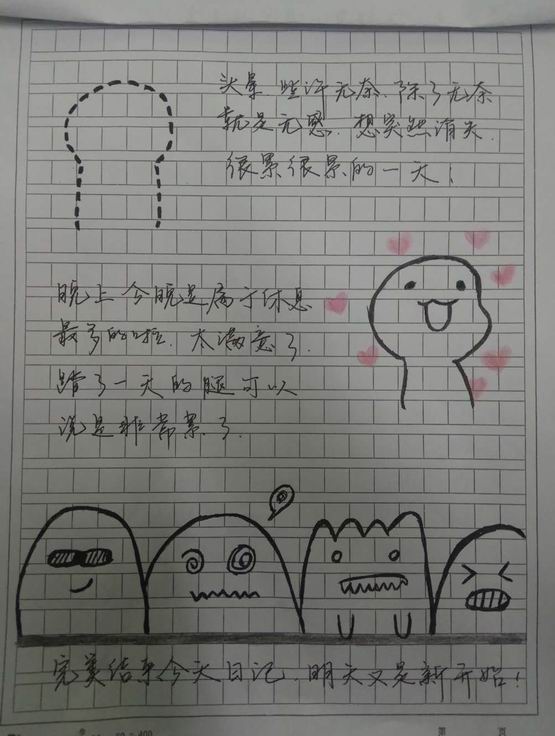 头晕 些许无奈.除了无奈
就是无感.想突然消失.
很累很累的一天!
晚上 今晚是属于休息
最多的啦.太满意了.
踏了一天的腿可以
说是非常累了.
完美结束今天日记.明天又是新开始!
第 页